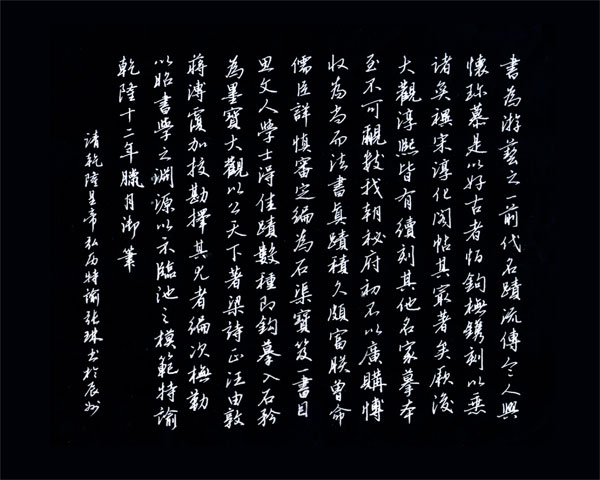 書為游藝之一前代名蹟流傳令人興
懷珍慕是以好古者恆鉤橅鐫刻以垂
諸奕禩宋淳化閣帖其最著矣厥後
大觀淳熙皆有續刻其他名家摹本
至不可覼數我朝秘府初不以廣購博
收為尚而法書真蹟積久頗富朕曾命
儒臣詳慎審定編為石渠寶笈一書因
思文人學士得佳蹟數種即鉤摹入石矜
為墨寶大觀以公天下著梁詩正汪由敦
蔣溥覆加校勘擇其尤者編次橅勒
以昭書學之淵源以示臨池之模範特諭
乾隆十二年臘月御筆
清乾隆皇帝弘曆特諭張書於辰州